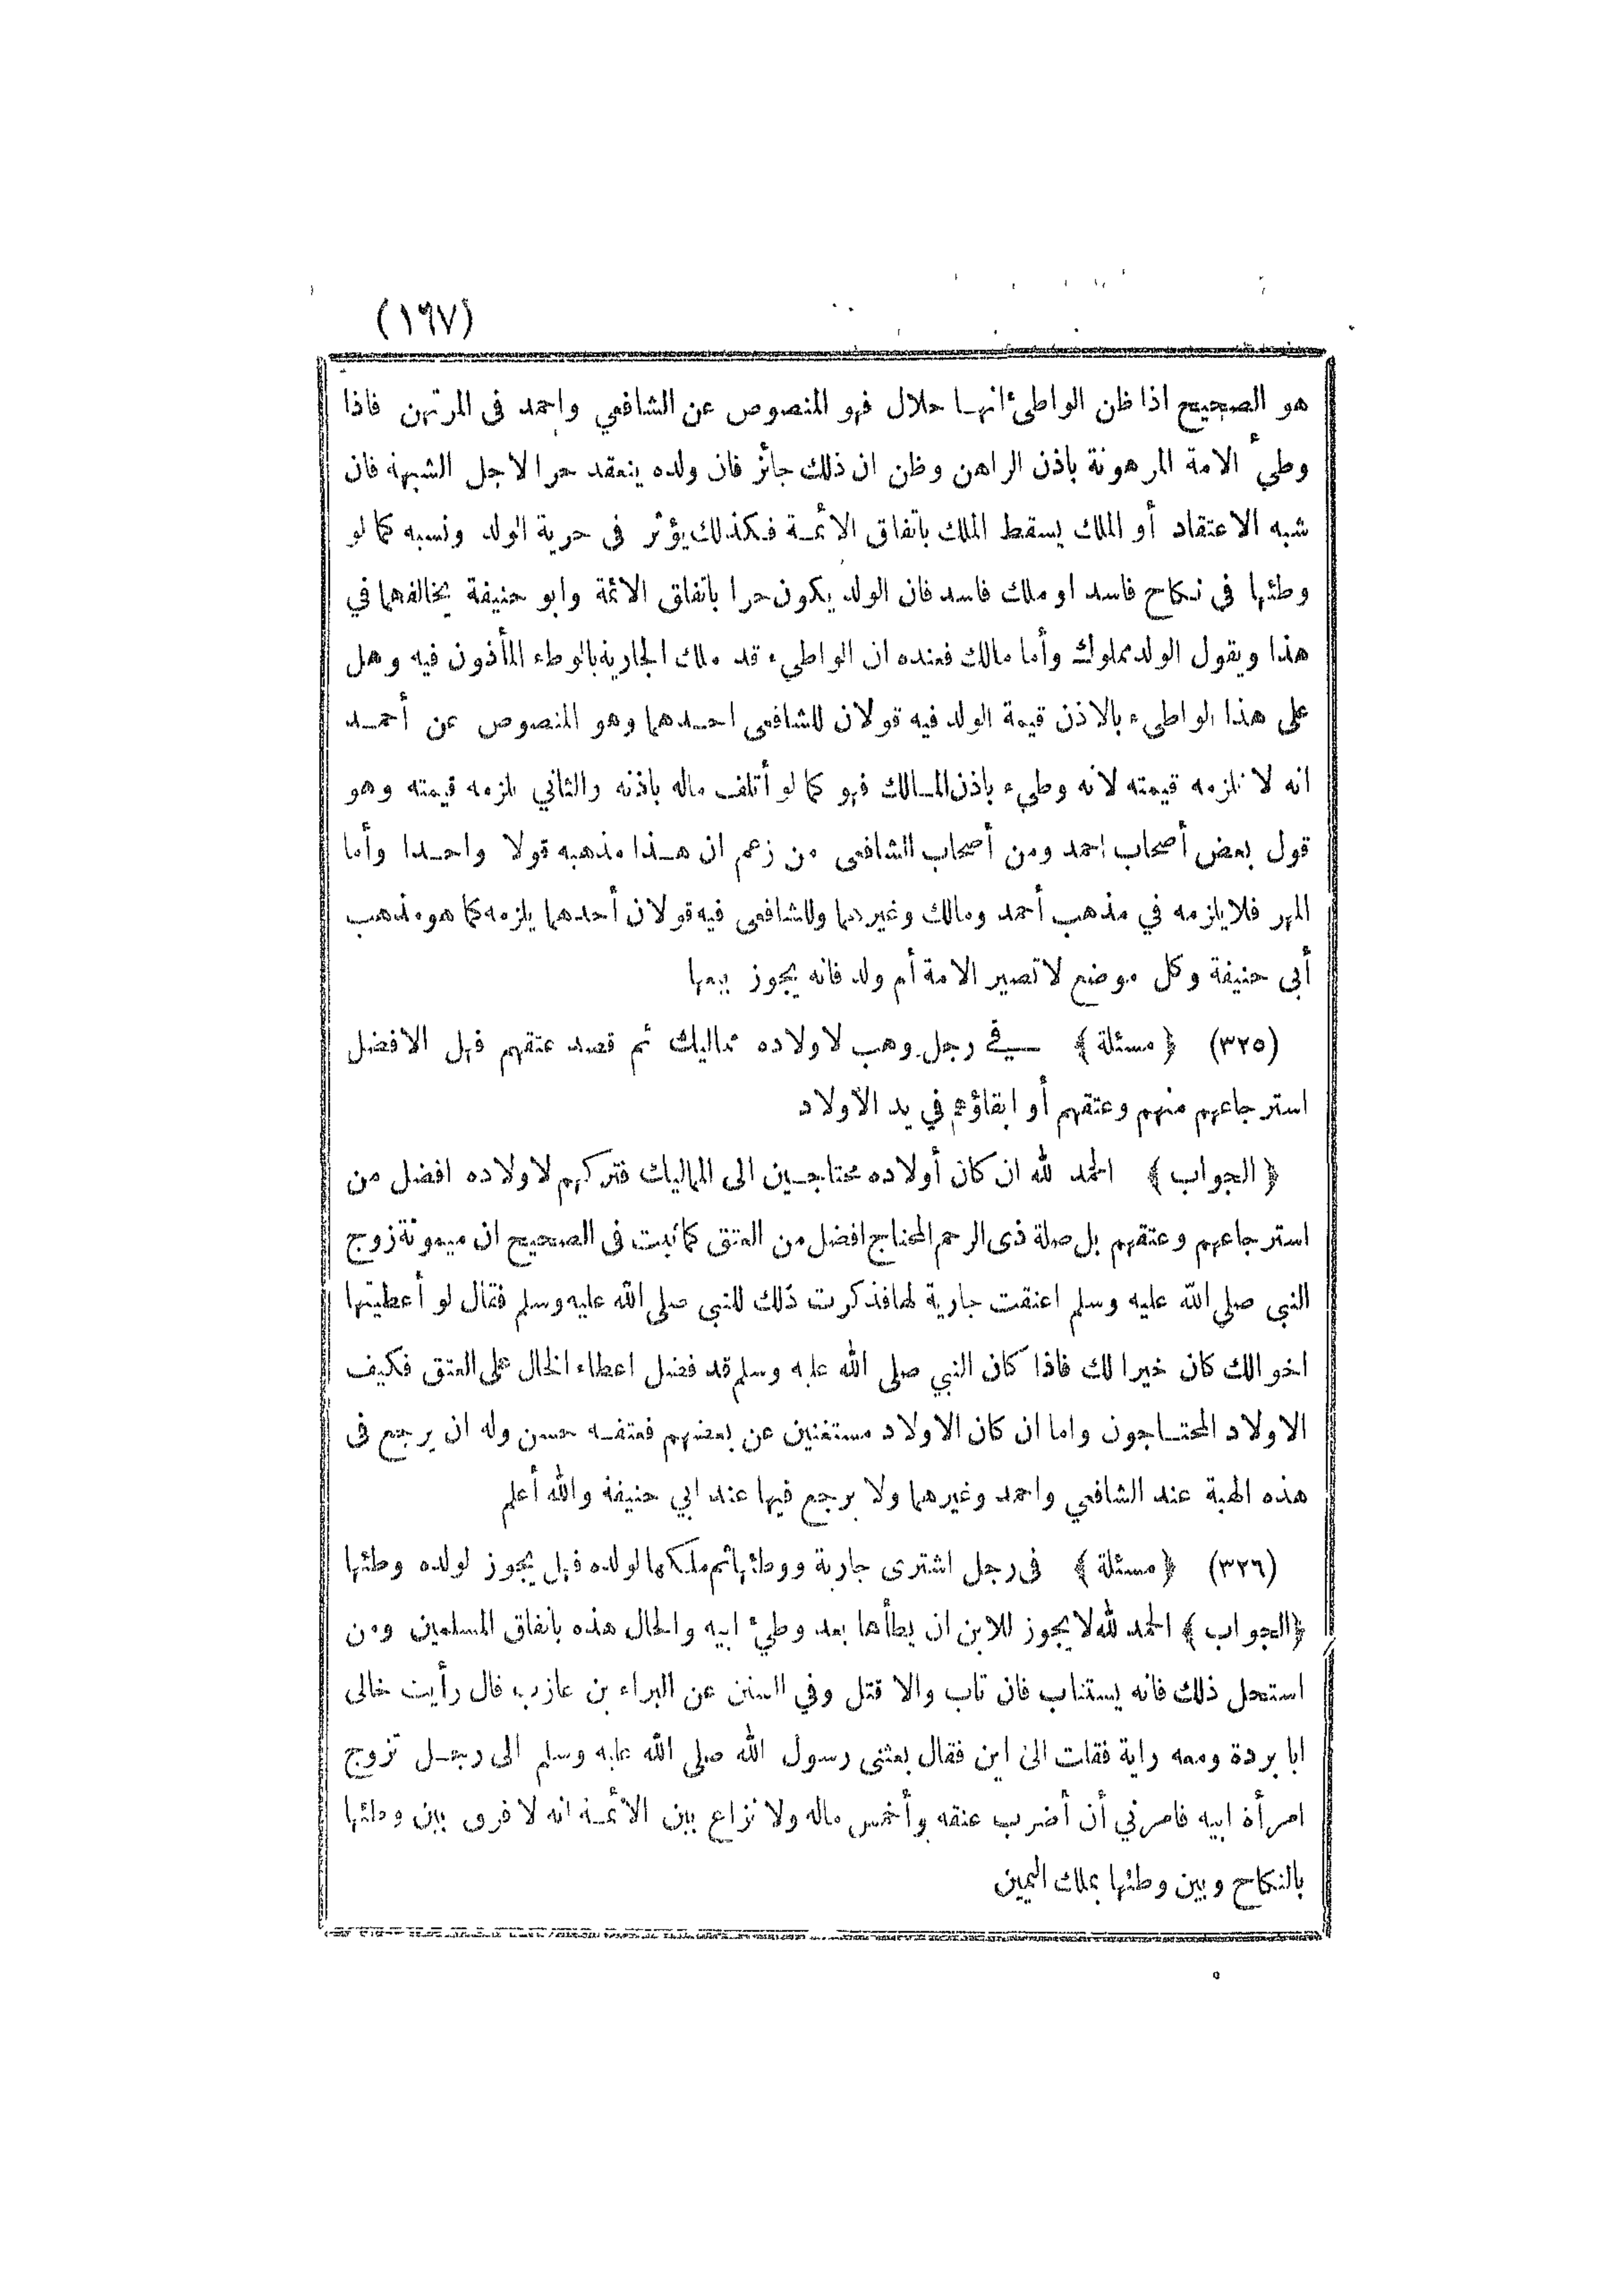 (١٦٧)
هو الصحيح اذا ظن الواطئ انها حلال فهو المنصوص عن الشافعي واحمد فى المرتهن فاذا
وطيء الامة المرهونة باذن الراهن وظن ان ذلك جائز فان ولده ينعقد حرا لاجل الشبهة فان
شبه الاعتقاد أو الملك يسقط الملك باتفاق الائمة فكذلك يؤثر فى حرية الولد ونسبه كما لو
وطئها فى نكاح فاسد او ملك فاسد فان الولد يكون حرا باتفاق الائمة وابو حنيفة يخالفهما في
هذا ويقول الولد مملوك وأما مالك فعنده ان الواطيء قد ملك الجارية بالوطء المأذون فيه وهل
على هذا الواطيء بالاذن قيمة الولد فيه قولان للشافعى احدهما وهو المنصوص عن أحمد
انه لا تلزمه قيمته لانه وطيء باذن المالك فهو كما لو أتلف ماله باذنه والثاني يلزمه قيمته وهو
قول بعض أصحاب احمد ومن أصحاب الشافعى من زعم ان هذا مذهبه قولا واحدا وأما
المهر فلا يلزمه في مذهب أحمد ومالك وغيرهما وللشافعى فيه قولان أحدهما يلزمه كما هو مذهب
أبى حنيفة وكل موضع لا تصير الامة أم ولد فانه يجوز بيعها
(٣٢٥) ﴿مسئلة﴾ في رجل وهب لاولاده مماليك ثم قصد عتقهم فهل الافضل
استرجاعهم منهم وعتقهم أو ابقاؤهم في يد الاولاد
﴿الجواب﴾ الحمد لله ان كان أولاده محتاجين الى المماليك فتركهم لاولاده افضل من
استرجاعهم وعتقهم بل صلة ذى الرحم المحتاج افضل من العتق كما ثبت فى الصحيح ان ميمونة زوج
النبى صلى الله عليه وسلم اعتقت جارية لها فذكرت ذلك للنبي صلى الله عليه وسلم فقال لو أعطيتها
اخوالك كان خيرا لك فاذا كان النبي صلى الله عليه وسلم قد فضل اعطاء الخال على العتق فكيف
الاولاد المحتاجون واما ان كان الاولاد مستغنين عن بعضهم فعتقه حسن وله ان يرجع فى
هذه الهبة عند الشافعي واحمد وغيرهما ولا يرجع فيها عند ابي حنيفة والله أعلم
(٣٢٦) ﴿مسئلة﴾ فى رجل اشترى جارية ووطئها ثم ملكها لولده فهل يجوز لولده وطئها
﴿الجواب﴾ الحمد لله لا يجوز للابن ان يطأها بعد وطيء ابيه والحال هذه باتفاق المسلمين ومن
استحل ذلك فانه يستتاب فان تاب والا قتل وفي السنن عن البراء بن عازب قال رأيت خالى
ابا بردة ومعه راية فقلت الى اين فقال بعثنى رسول الله صلى الله عليه وسلم الى رجل تزوج
امرأة ابيه فامرني أن أضرب عنقه وأخمس ماله ولا نزاع بين الائمة انه لا فرق بين وطئها
بالنكاح وبين وطئها بملك اليمين